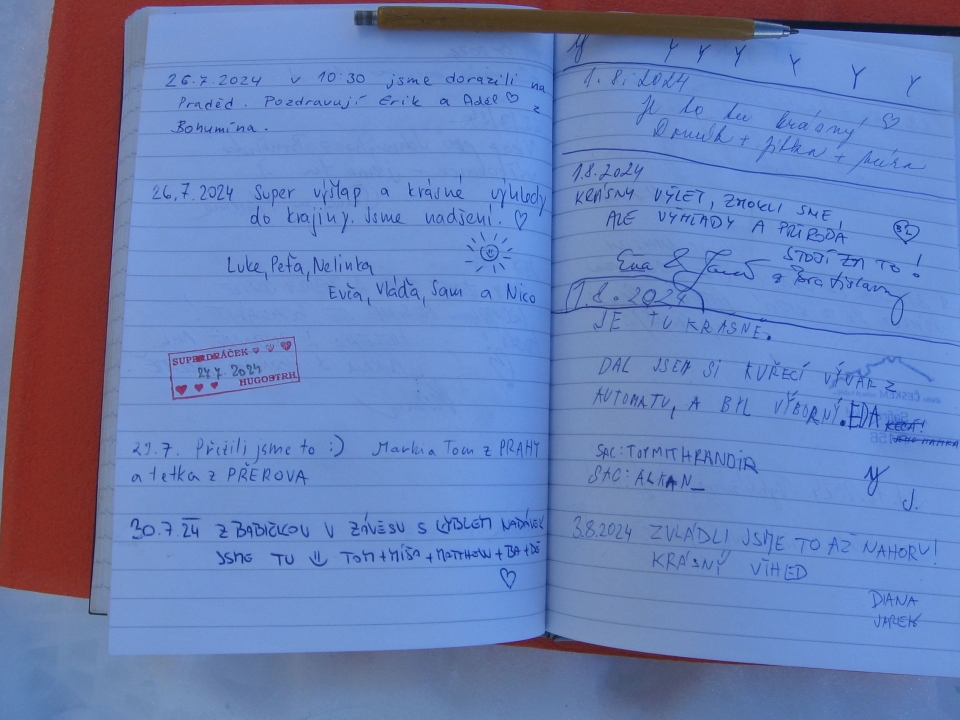 26.7.2024 v 10:30 jsme dorazili na
Praděd. Pozdravují Erik a Adél ♡ z
Bohumína.
26.7.2024 Super výšlap a krásné výhledy
do krajiny. Jsme nadšení. ♡
Luke, Peťa, Nelinka
Evča, Vláďa, Sam a Nico
SUPERDRÁČEK
27.7.2024
HUGOSTRH
29.7. Přežili jsme to :) Marki a Tom z PRAHY
a tetka z PŘEROVA
30.7.24 Z BABIČKOU V ZÁVĚSU S KÝBLEM NADÁVEK
JSME TU TOM+MÍŠA+MATTHEW+BA+DĚ
♡
1.8.2024
Je to tu krásný! ♡
Dominik + Jitka +
1.8.2024
KRÁSNÝ VÝLET, ZMOKLI SME,
ALE VÝHLADY A PRÍRODA
STOJÍ ZA TO!
Ema & z Bratislavy
1.8.2024
JE TU KRÁSNĚ.
DAL JSEM SI KUŘECÍ VÝVAR Z
AUTOMATU, A BYL VÝBORNÝ. EDA
SAC: TOYMITHRANDIR
SAC: ALKAN_
J.
3.8.2024 ZVLÁDLI JSME TO AŽ NAHORU!
KRÁSNÝ VÍHED
DIANA
JAREK